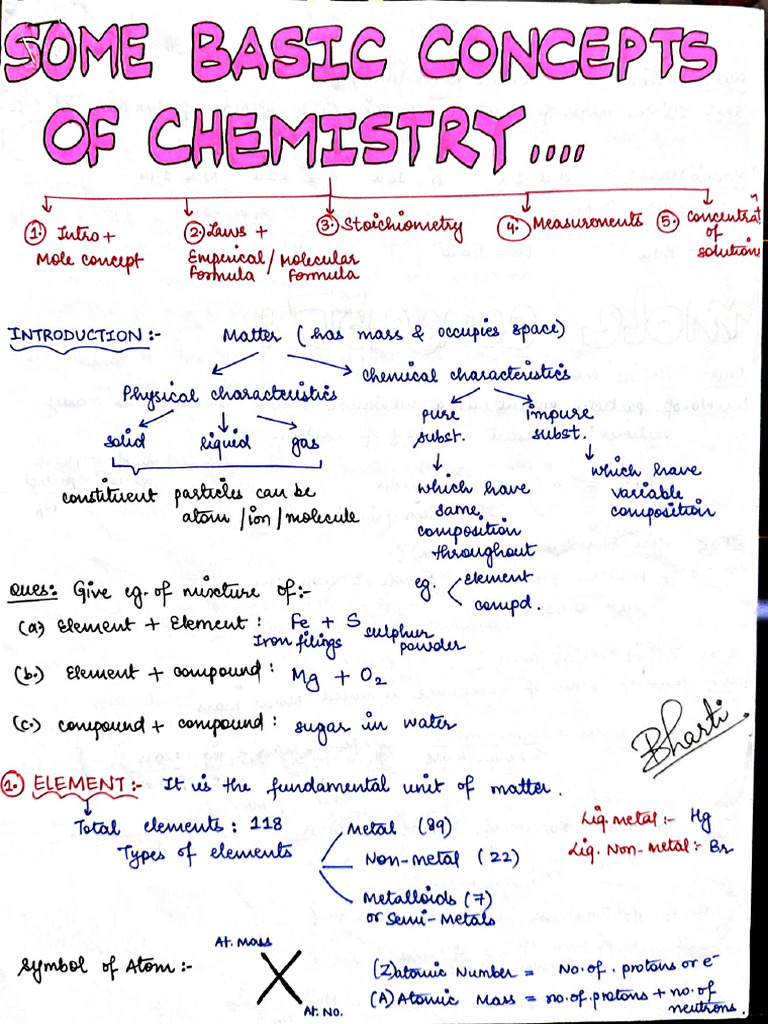 SOME BASIC CONCEPTS
OF CHEMISTRY....
1. Intro + Mole concept
2. Laws + Empirical/Molecular formula formula
3. Stoichiometry
4. Measurements
5. Concentrat of solution
INTRODUCTION :- Matter (has mass & occupies space)
Physical characteristics
solid liquid gas
constituent particles can be
atom/ion/molecule
Chemical characteristics
pure subst.
which have
same
composition
throughout
eg. element
compd.
impure subst.
which have
variable
composition
Ques: Give eg. of mixture of:-
(a.) Element + Element : Fe + S
Iron filings sulphur powder
(b.) Element + compound : Mg + O2
(c.) compound + compound : sugar in water
Bharti
1. ELEMENT :- It is the fundamental unit of matter.
Total elements : 118
Types of elements
Metal (89)
Non-metal (22)
Metalloids (7)
or Semi-Metals
Liq. metal :- Hg
Liq. Non-Metal :- Br
Symbol of Atom :-
At. Mass
X
At. No.
(Z) atomic Number = No. of. protons or e-
(A) Atomic Mass = no. of. protons + no. of
neutrons.